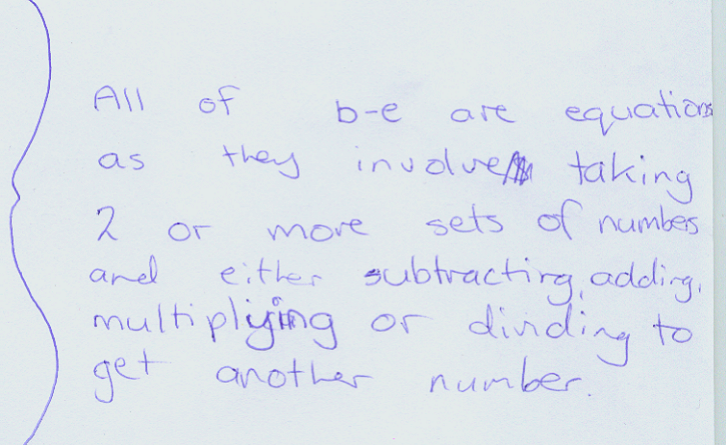 All of b-e are equations
as they involve taking
2 or more sets of numbers
and either subtracting, adding,
multiplying or dividing to
get another number.